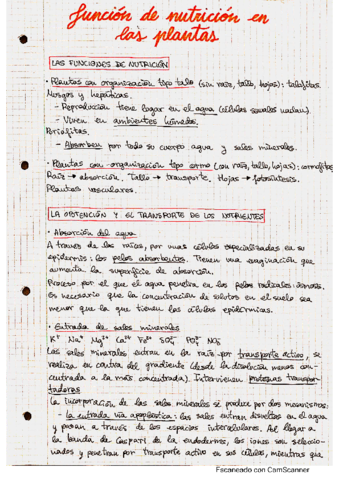 función de nutrición en
las plantas
LAS FUNCIONES DE NUTRICIÓN
· Plantas con organización tipo talo (sin raíz, tallo, hojas): talofitas.
Musgos y hepáticas.
- Reproducción tiene lugar en el agua (células sexuales nadan).
- Viven en ambientes húmedos.
Briófitas.
- Absorben por todo su cuerpo agua y sales minerales.
· Plantas con organización tipo cormo (con raíz, tallo, hojas): cormofitas
Raíz → absorción, Tallo → transporte, Hojas → fotosíntesis.
Plantas vasculares.
LA OBTENCIÓN Y EL TRANSPORTE DE LOS NUTRIENTES
· Absorción del agua
A través de las raíces, por unas células especializadas en su
epidermis: los pelos absorbentes. Tienen una evaginación que
aumenta la superficie de absorción.
Proceso por el que el agua penetra en los pelos radicales: ósmosis.
Es necesario que la concentración de solutos en el suelo sea
menor que la que tienen las células epidérmicas.
· Entrada de sales minerales
K⁺ Na⁺ Mg²⁺ Ca²⁺ Fe²⁺ SO₄²⁻ PO₄³⁻ NO₃⁻
Las sales minerales entran en la raíz por transporte activo, se
realiza en contra del gradiente (desde la disolución menos con-
centrada a la más concentrada). Intervienen proteínas transpor-
tadoras
La incorporación de las sales minerales se produce por dos mecanismos:
- La entrada vía apoplástica: las sales entran disueltas en el agua
y pasan a través de los espacios intercelulares. Al llegar a
la banda de Caspary de la endodermis, los iones son seleccio-
nados y penetran por transporte activo en sus células, mientras que
Escaneado con CamScanner